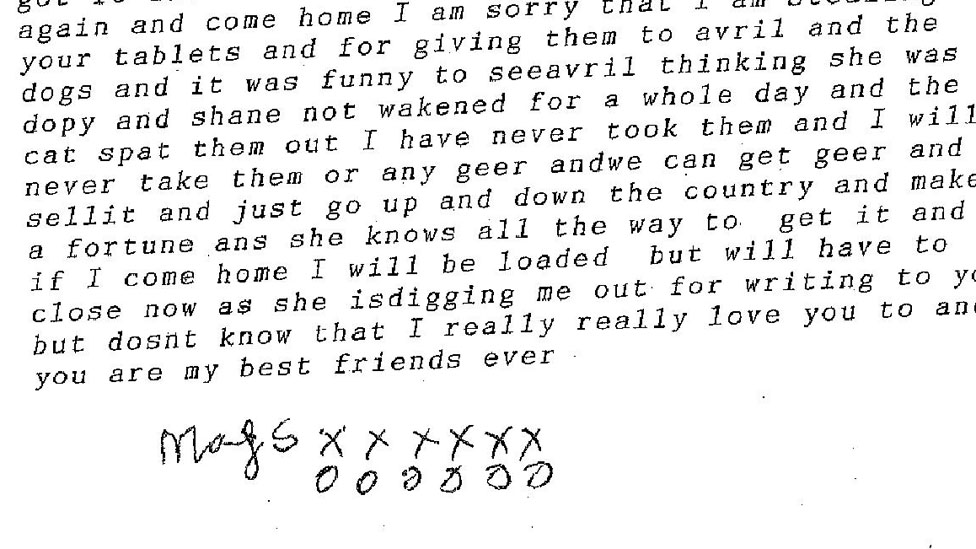 again and come home I am sorry that I am
your tablets and for giving them to avril and the
dogs and it was funny to seeavril thinking she was
dopy and shane not wakened for a whole day and the
cat spat them out I have never took them and I will
never take them or any geer andwe can get geer and
sellit and just go up and down the country and make
a fortune ans she knows all the way to get it and
if I come home I will be loaded but will have to
close now as she isdigging me out for writing to
but dosnt know that I really really love you to
you are my best friends ever
Mags x x x x x x
o o o o o o